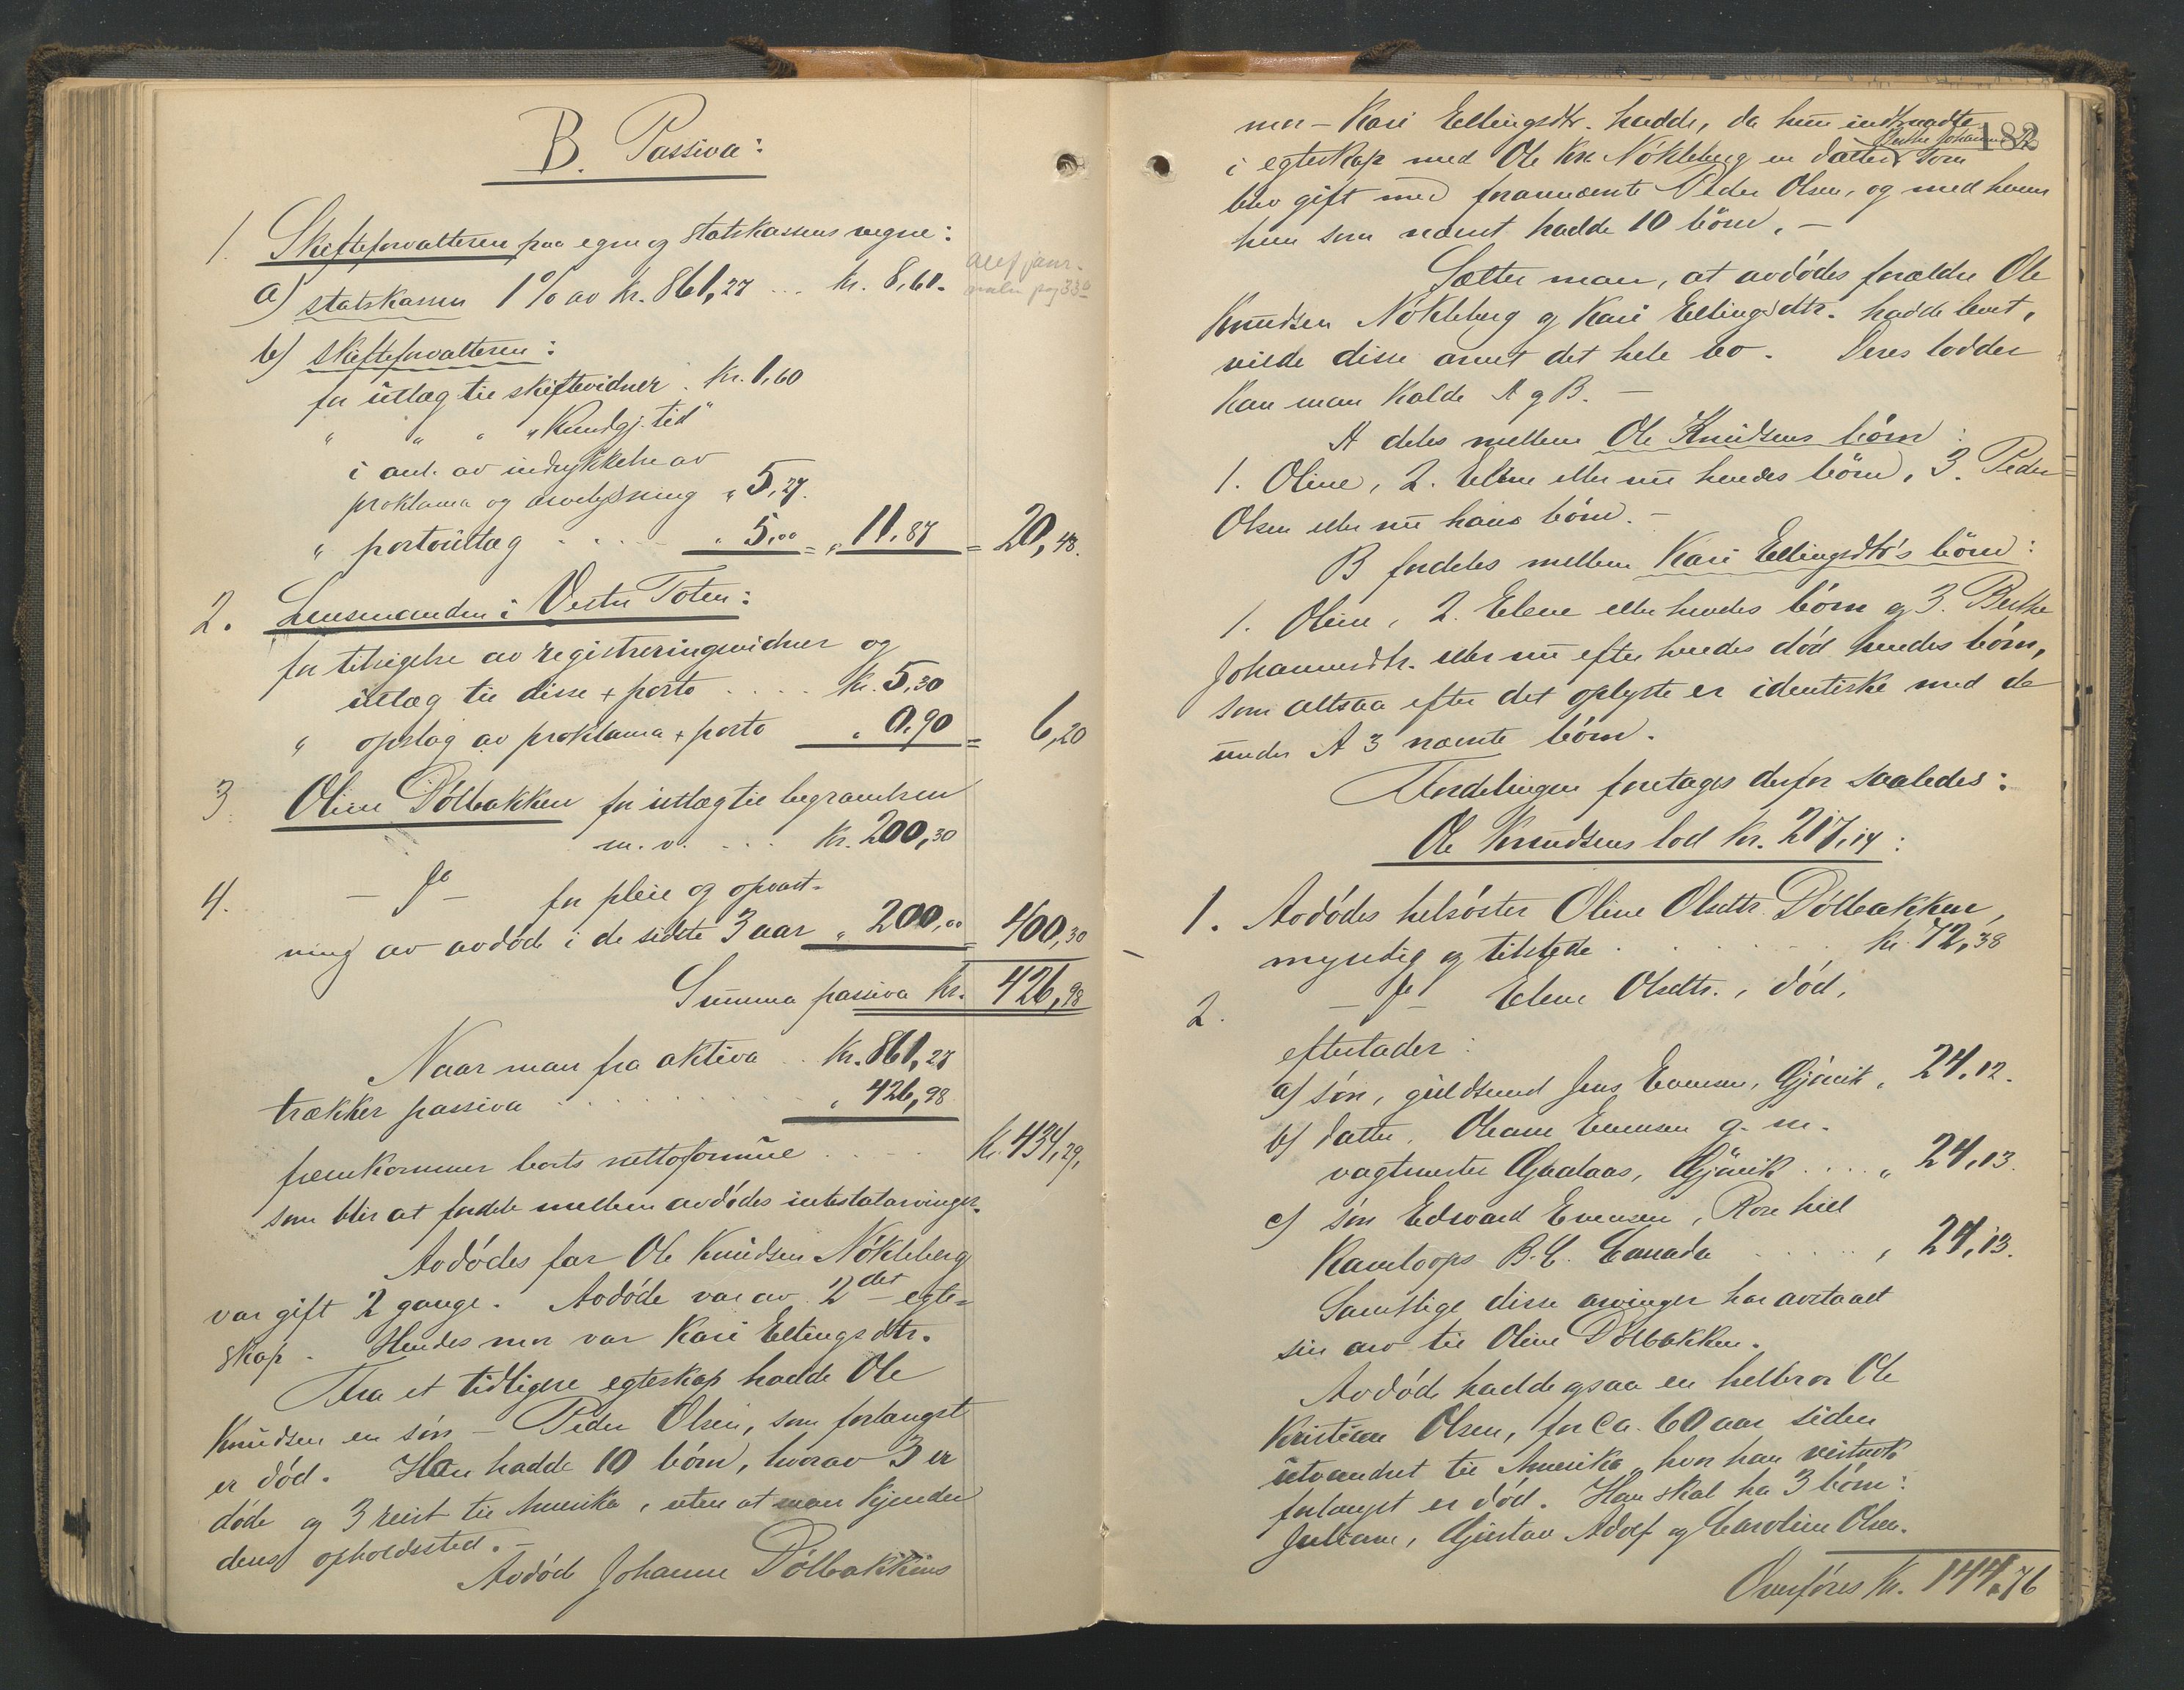 B. Passiva:
1. Skifteforvalteren paa egne og statskassens vegne:
a) statskassen 1% av kr. 861,27 ... kr. 8,61.
b) skifteforvalteren:
for utlæg til skiftevidner . kr. 1,60
" " " "Kundgj. tid"
i anl. av indrykkelse av
proklama og arvelysning " 5,27.
" portoutlæg . . . . " 5,00 = " 11,87 = 20,48.
2. Lensmanden i Vestre Toten:
for tilsigelse av registreringsvidner og
utlæg til disse + porto . . . . kr. 5,30
" opslag av proklama + porto " 0,90 = 6,20
3. Oline Dölbakken for utlæg til begravelsen
m. v. . . . kr. 200,30
4. - Do - for pleie og opvart-
ning av avdøde i de sidste 3 aar " 200,00 = 400,30
Summa passiva kr. 426,98
Naar man fra aktiva .. kr. 861,27
trækker passiva . . . . . . . " 426,98
fremkommer boets nettoformue . . . . kr. 434,29,
som blir at fordele mellem avdödes intestatarvinger.
Avdödes far Ole Knudsen Nökleberg
var gift 2 gange. Avdöde var av 2det egte-
skap. Hendes mor var Kari Ellingsdtr.
Fra et tidligere egteskap hadde Ole
Knudsen en sön - Peder Olsen, som forlængst
er död. Han hadde 10 börn, hvorav 3 er
döde og 3 reist til Amerika, uten at man kjender
deres opholdssted. -
Avdöde Johanne Dölbakkens
182
mor - Kari Ellingsdtr. hadde, da hun indtraadte
Berthe Johannesdtr.
i egteskap med Ole Kn. Nökleberg en datter som
blev gift med forannævnte Peder Olsen, og med hvem
hun som nævnt hadde 10 börn. -
Sætter man, at avdödes forældre Ole
Knudsen Nökleberg og Kari Ellingsdtr. hadde levet,
vilde disse arvet det hele bo. Deres lodder
kan man kalde A og B. -
A deles mellem Ole Knudsens börn:
1. Oline, 2. Elene eller nu hendes börn, 3. Peder
Olsen eller nu hans börn. -
B fordeles mellem Kari Ellingsdtr's börn:
1. Oline, 2. Elene eller hendes börn og 3. Berthe
Johannesdtr. eller nu efter hendes död hendes börn,
som altsaa efter det oplyste er identiske med de
under A 3 nævnte börn.
Fordelingen foretages derfor saaledes:
Ole Knudsens lod kr. 217,14:
1. Avdödes helsöster Oline Olsdtr. Dölbakken,
myndig og tilstede . . . . . . kr. 72,38
2. - Do - Elene Olsdtr., död,
efterlader:
a) sön, guldsmed Jens Evensen, Gjövik " 24,12.
b) datter, Oleane Evensen g. m.
vagtmester Gaalaas, Gjövik . . . . " 24,13.
c) sön Edvard Evensen, Rose hill
Kamloops B. C. Canada . . . . . " 24,13.
Samtlige disse arvinger har avstaaet
sin arv til Oline Dölbakken.
Avdöde hadde ogsaa en helbror Ole
Kristian Olsen, for ca. 60 aar siden
utvandret til Amerika, hvor han vistnok
forlængst er död. Han skal ha 3 börn:
Juliane, Gustav Adolf og Caroline Olsen.
Overföres kr. 144,76